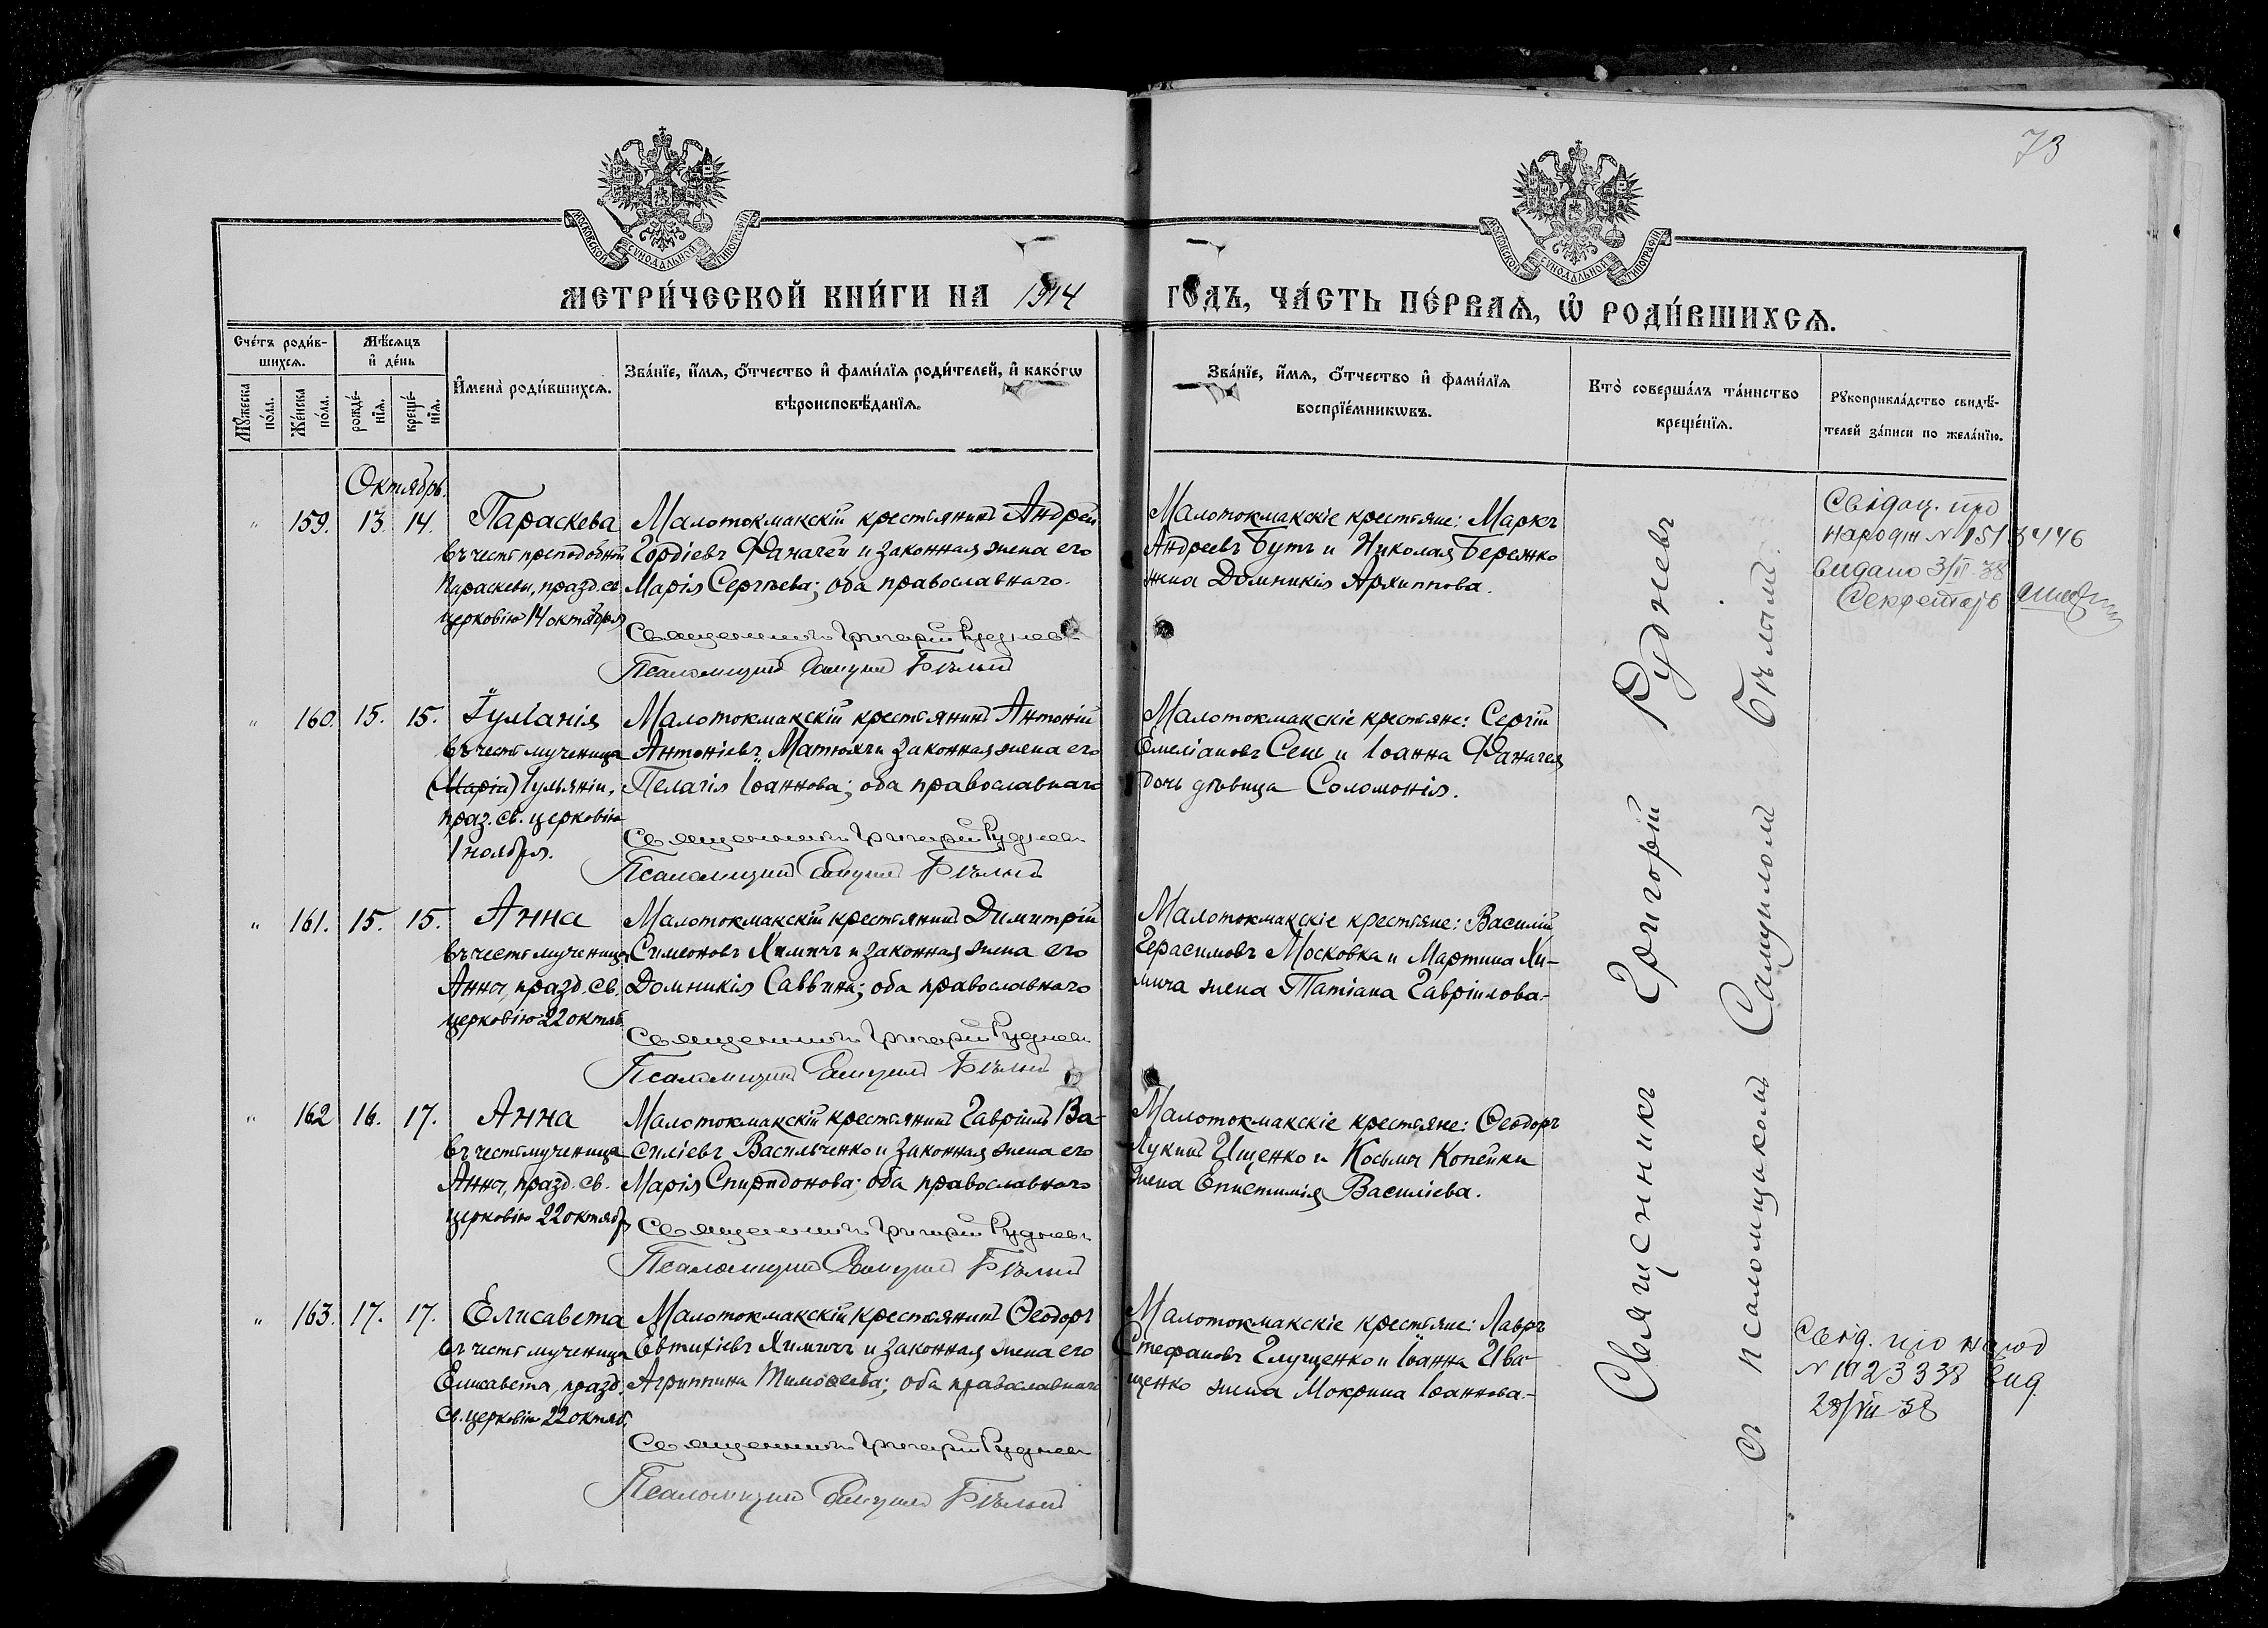 73
МОСКОВСКОЙ СѴНОДАЛЬНОЙ ТИПОГРАФІИ
МОСКОВСКОЙ СѴНОДАЛЬНОЙ ТИПОГРАФІИ
МЕТРИ́ЧЕСКОЙ КНИ́ГИ НА 1914 ГО́ДЪ, ЧА́СТЬ ПЕ́РВАѦ, Ѡ҆ РОДИ́ВШИХСѦ.
Сче́тъ роди́в-
шихсѧ.
Мꙋ́жеска по́ла.
Же́нска по́ла.
Мѣ́сѧцъ
и҆ де́нь
рожде́-
нїѧ.
креще́-
нїѧ.
И҆мена̀ роди́вшихсѧ.
Зва́нїе, и҆́мѧ, ѻ҆́тчество и҆ фами́лїѧ роди́телей, и҆ како́гѡ
вѣроисповѣ́данїѧ.
Зва́нїе, и҆́мѧ, ѻ҆́тчество и҆ фами́лїѧ
воспрїе́мникѡвъ.
Кто̀ соверша́лъ та́инство
креще́нїѧ.
Рꙋкоприкла́дство свидѣ́-
телей за́писи по жела́нїю.
Октябрь.
" 159. 13. 14. Параскева
въ честь преподобной
Параскевы, празд. св.
церковію 14 октября
Малотокмакскій крестьянинъ Андрей
Гордіевъ Фаначей и законная жена его
Марія Сергѣева; оба православнаго.
Священникъ Григорій Рудневъ
Псаломщикъ Самуилъ Бѣлый
Малотокмакскіе крестьяне: Маркъ
Андреевъ Бутъ и Николая Бережко
жена Домникія Архиппова.
Свідоц. про
народж N 151 3446
видано 3/VI 38
Секретарь
" 160. 15. 15. Іуліанія
въ честь мученицы
(Маріи) Іульяніи,
праз. св. церковію
1 ноября.
Малотокмакскій крестьянинъ Антоній
Антоніевъ Матюхъ и законная жена его
Пелагія Іоаннова; оба православнаго
Священникъ Григорій Рудневъ
Псаломщикъ Самуилъ Бѣлый
Малотокмакскіе крестьяне: Сергій
Емеліановъ Сень и Іоанна Фаначея
дочь дѣвица Соломонія.
" 161. 15. 15. Анна
въ честь мученицы
Анны, празд. св.
церковію 22 октяб.
Малотокмакскій крестьянинъ Димитрій
Симеоновъ Химичъ и законная жена его
Домникія Саввина; оба православнаго
Священникъ Григорій Рудневъ
Псаломщикъ Самуилъ Бѣлый
Малотокмакскіе крестьяне: Василій
Герасимовъ Московка и Мартина Хи-
мича жена Татіана Гавріилова.
" 162 16. 17. Анна
въ честь мученицы
Анны, празд. св.
церковію 22 октяб
Малотокмакскій крестьянинъ Гавріилъ Ва-
силіевъ Васильченко и законная жена его
Марія Спиридонова; оба православнаго
Священникъ Григорій Рудневъ
Псаломщикъ Самуилъ Бѣлый
Малотокмакскіе крестьяне: Ѳеодоръ
Лукинъ Ищенко и Косьмы Копейки
жена Епистимія Василіева.
" 163. 17. 17. Елисавета
въ честь мученицы
Елисаветы, празд.
св. церковію 22 октяб.
Малотокмакскій крестьянинъ Ѳеодоръ
Евтихіевъ Химичъ и законная жена его
Агриппина Тимоѳеева; оба православнаго
Священникъ Григорій Рудневъ
Псаломщикъ Самуилъ Бѣлый
Малотокмакскіе крестьяне: Лавръ
Стефановъ Глущенко и Іоанна Ива-
щенко жена Мокрина Іоаннова.
Свід. про народ
28/VII 38
Священникъ Григорій Рудневъ
съ псаломщикомъ Самуиломъ Бѣлымъ.